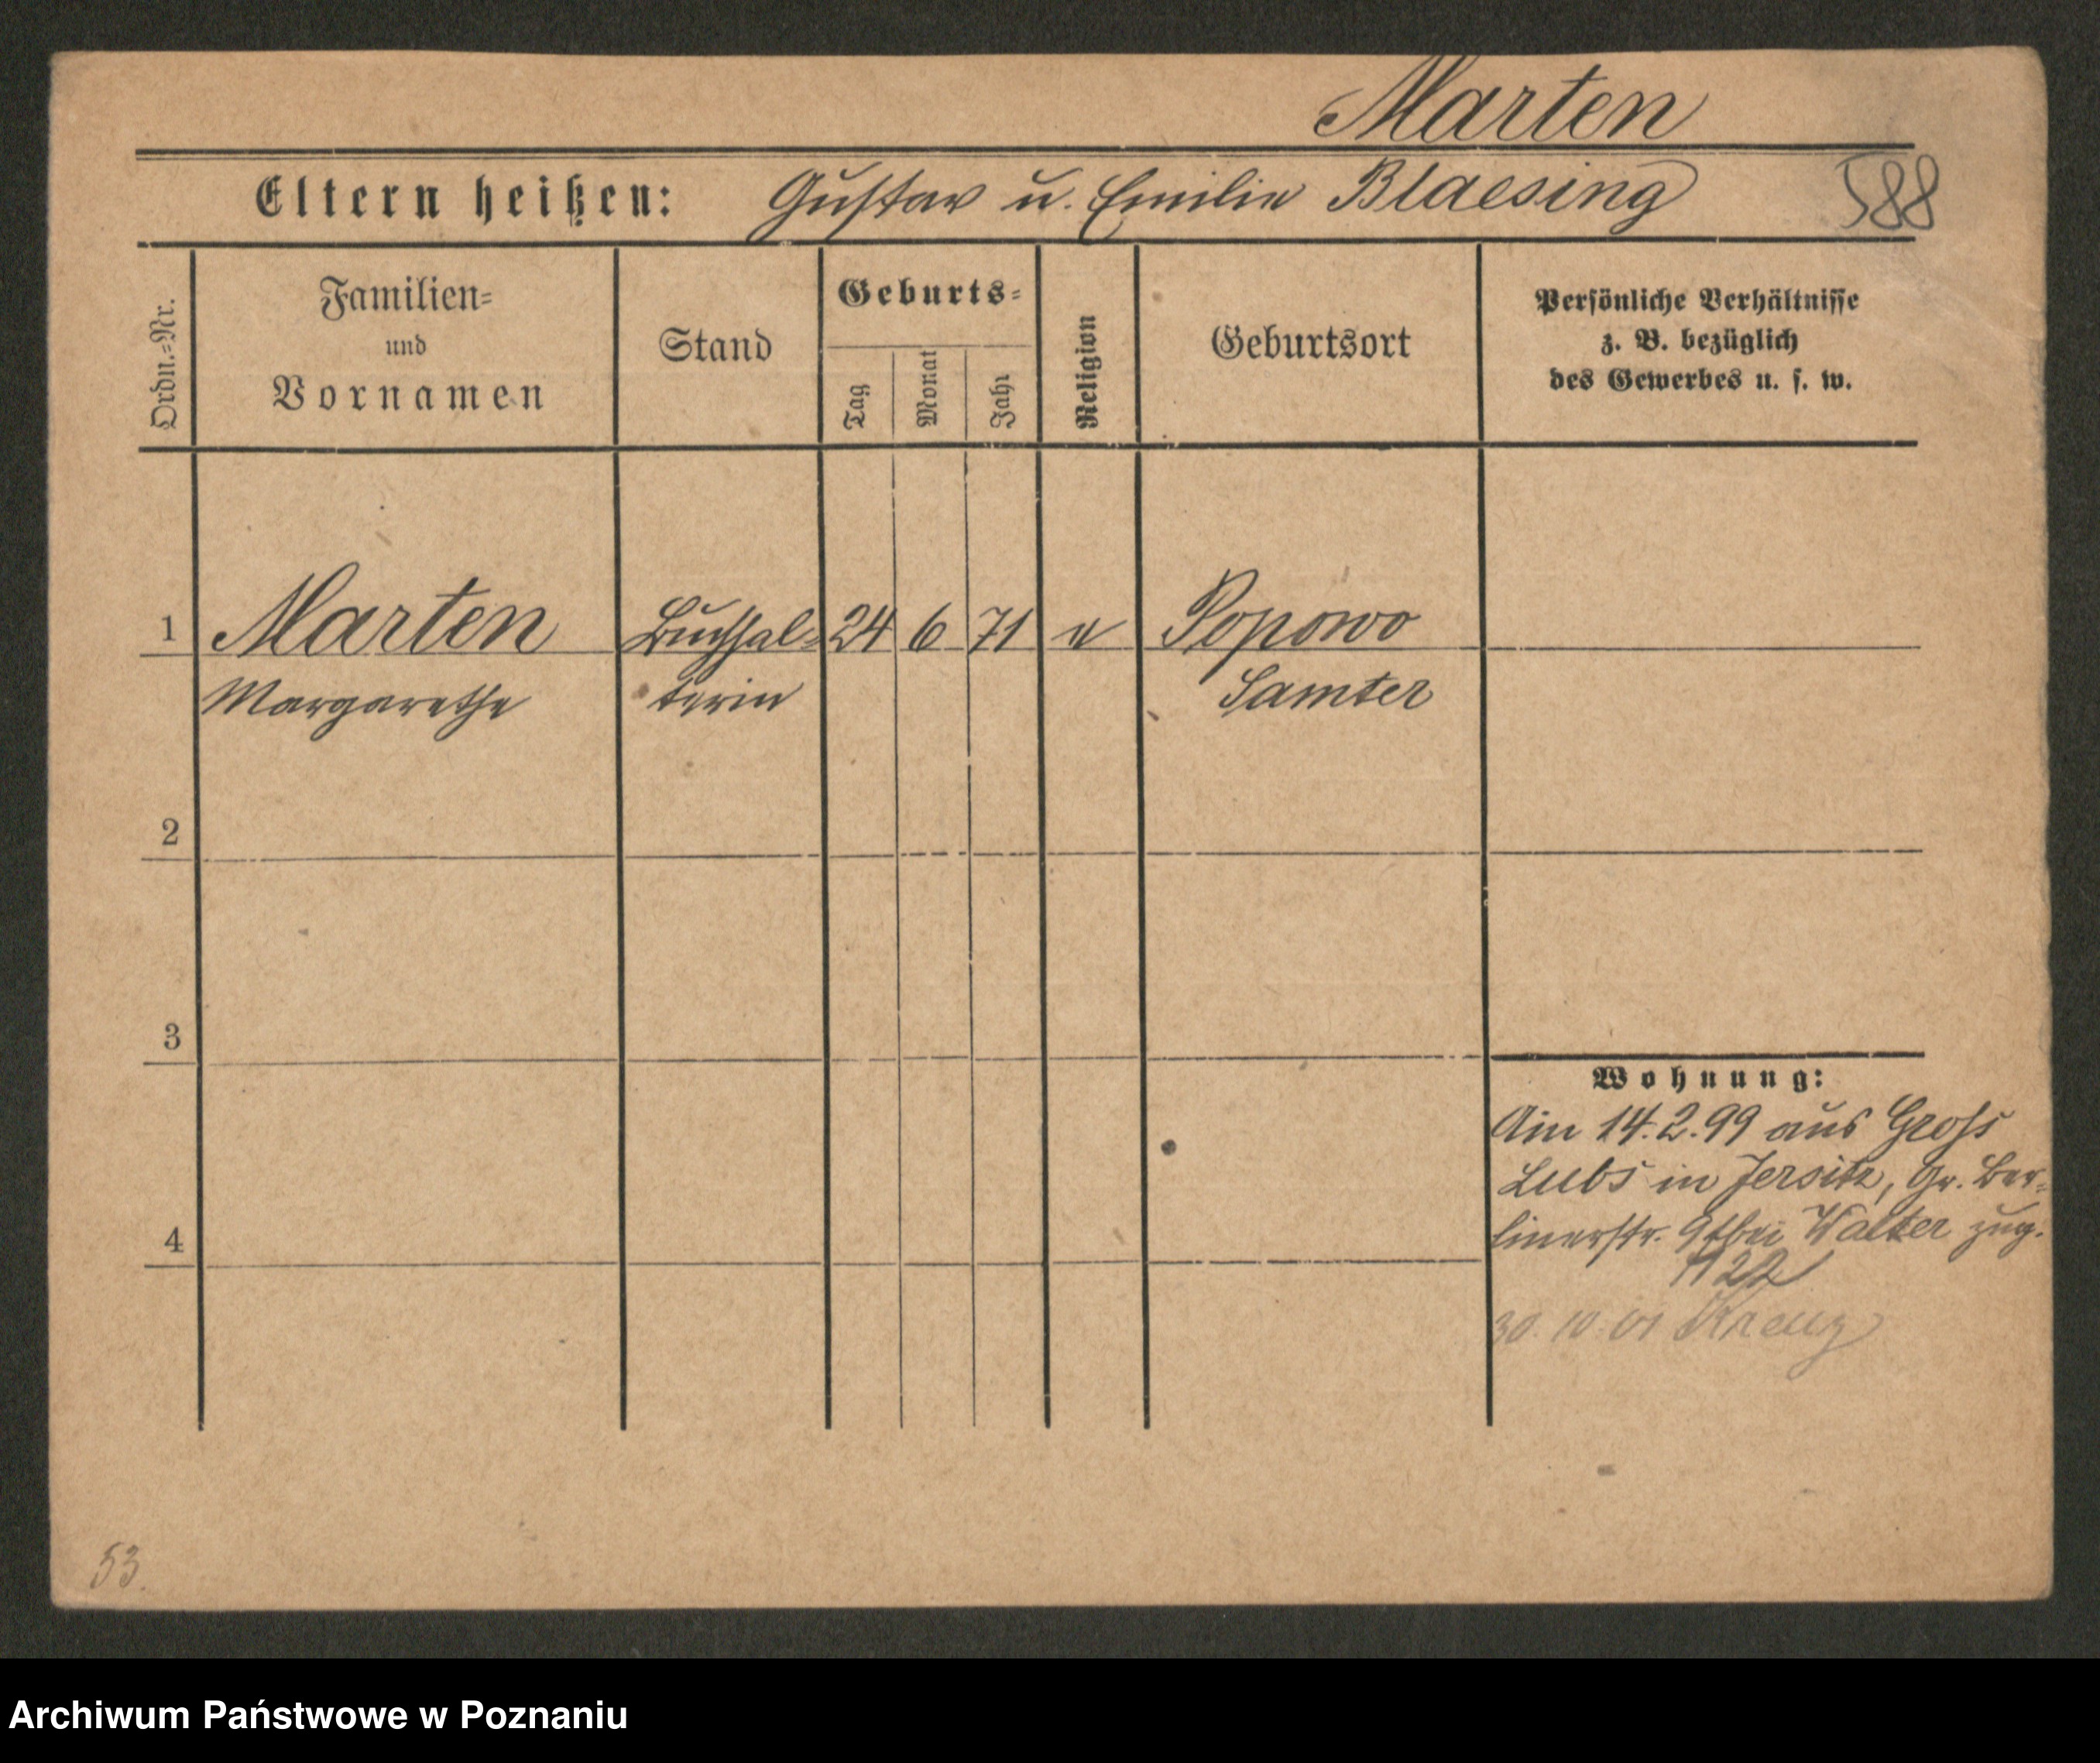 Marten
Eltern heißen: Gustav u. Emilie Blaesing 588
Ordn.=Nr.
Familien=
und
Vornamen
Stand
Geburts=
Tag
Monat
Jahr
Religion
Geburtsort
Persönliche Verhältnisse
z. B. bezüglich
des Gewerbes u. s. w.
1 Marten Buchhal= 24 6 71 e Popowo
Margarethe terin Samter
2
3
4
Wohnung:
Am 14.2.99 aus Gross
Lubs in Jersitz, Gr. Ber=
linerstr. bei Walter zug.
30.10.01 Kreuz
53.
Archiwum Państwowe w Poznaniu